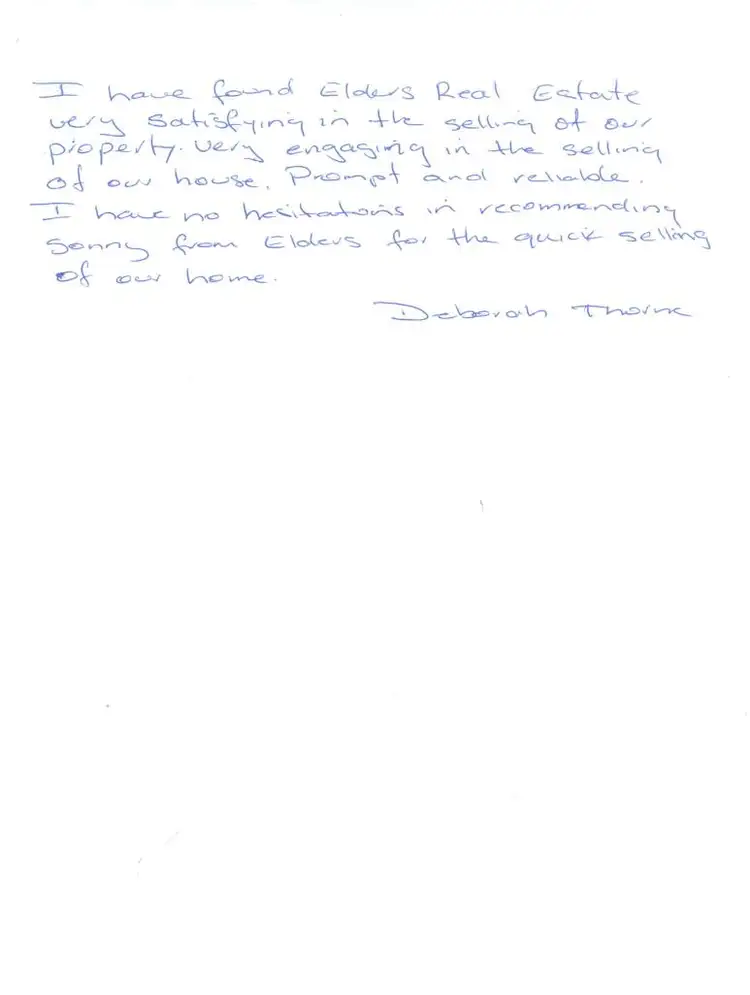 I have found Elders Real Estate
very satisfying in the selling of our
property. Very engaging in the selling
of our house. Prompt and reliable.
I have no hesitations in recommending
Sonny from Elders for the quick selling
of our home.
Deborah Thorne